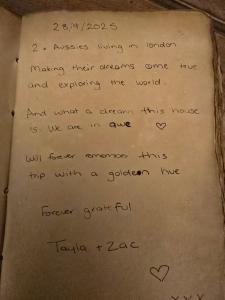 28/9/2025
2 . Aussies living in london
Making their dreams come true
and exploring the world.
And what a dream this house
is. We are in awe ♡
Will forever remember this
trip with a golden hue
Forever grateful
Tayla + Zac
♡
X X X